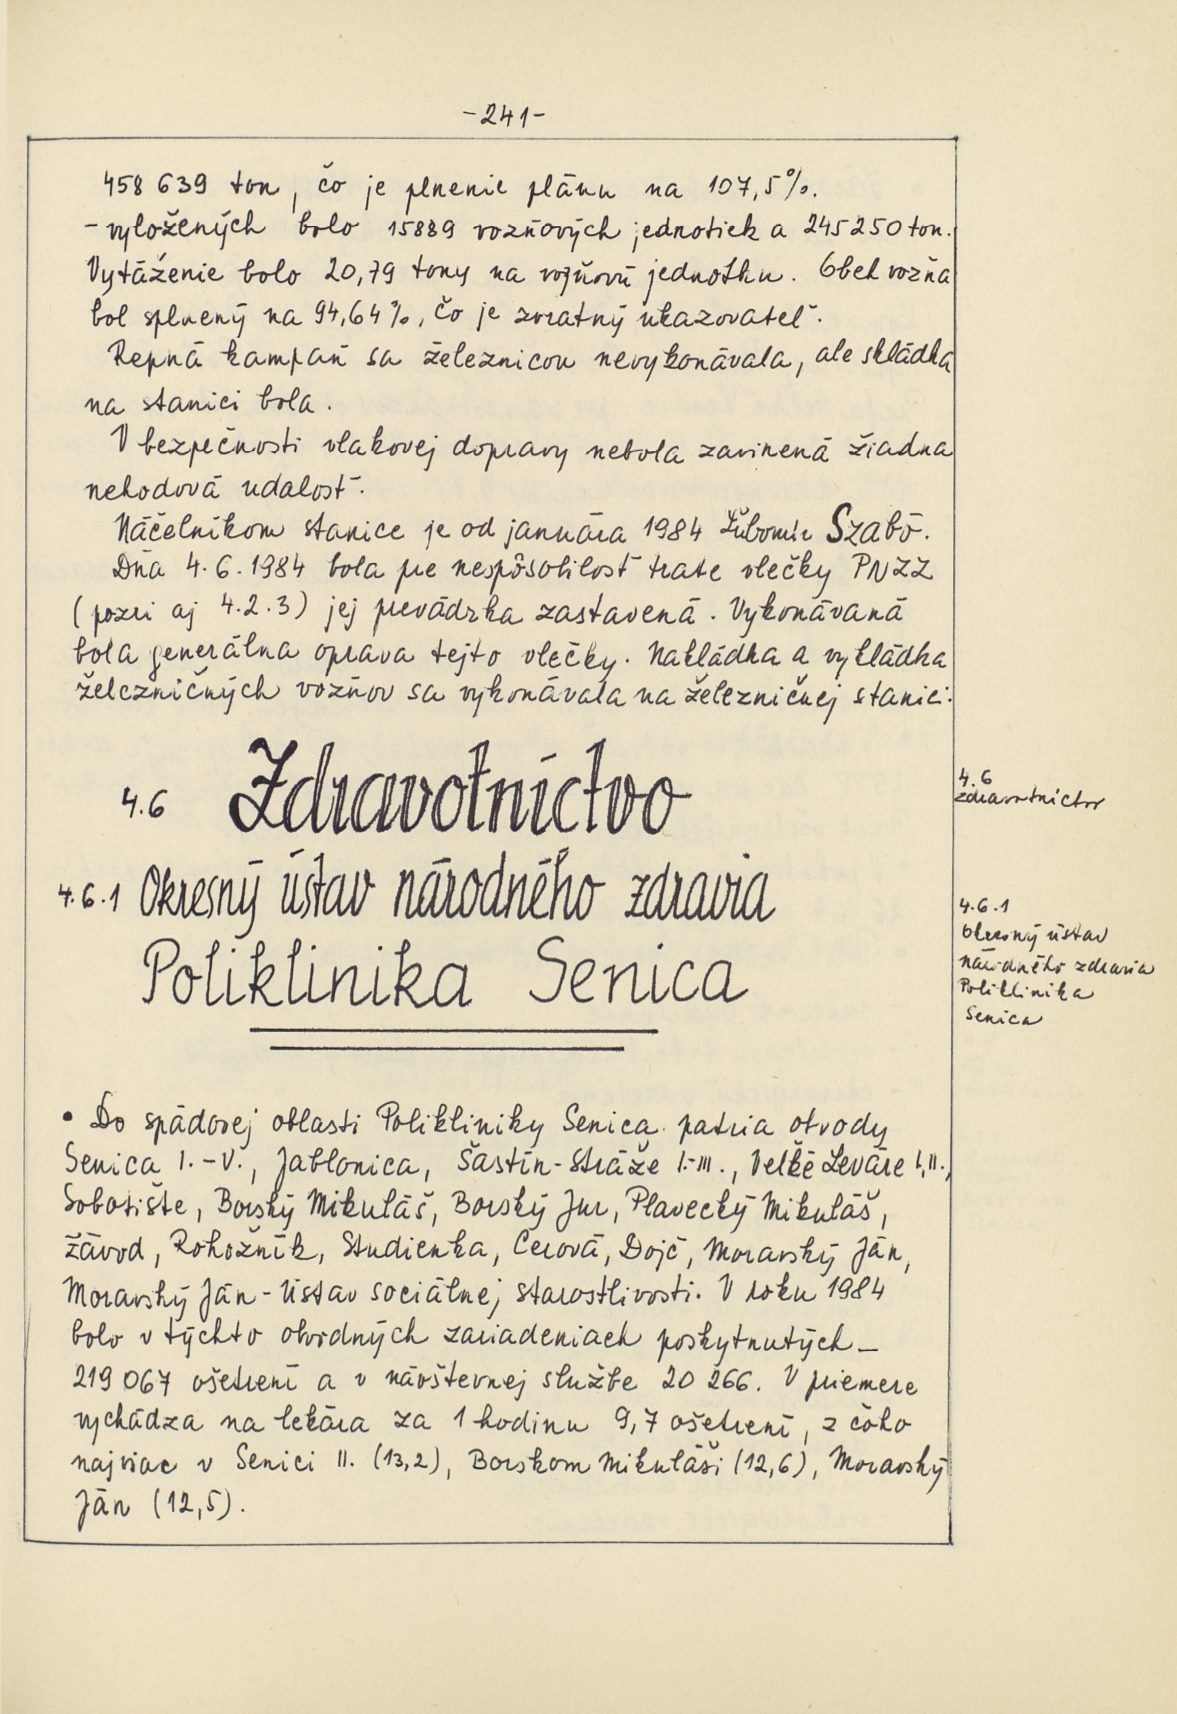 -241-
458 639 ton, čo je plnenie plánu na 107,5%.
- vyložených bolo 15889 vozňových jednotiek a 245250 ton.
Vytáženie bolo 20,79 tony na vozňovú jednotku. Obeh vozňa
bol splnený na 94,64%, čo je zvratný ukazovateľ.
Repná kampaň sa železnicou nevykonávala, ale skládka
na stanici bola.
V bezpečnosti vlakovej dopravy nebola zavinená žiadna
nehodová udalosť.
Náčelníkom stanice je od januára 1984 Ľubomír Szabó.
Dňa 4.6.1984 bola pre nespôsobilosť trate vlečky PNZZ
(pozri aj 4.2.3) jej prevádzka zastavená. Vykonávaná
bola generálna oprava tejto vlečky. Nakládka a vykládka
železničných vozňov sa vykonávala na železničnej stanici.
4.6 Zdravotníctvo
4.6
zdravotníctvo
4.6.1 Okresný ústav národného zdravia
Poliklinika Senica
4.6.1
Okresný ústav
národného zdravia
Poliklinika
Senica
• Do spádovej oblasti Polikliniky Senica patria obvody
Senica I.-V., Jablonica, Šaštín-Stráže I.-III., Veľké Leváre I, II.,
Sobotište, Borský Mikuláš, Borský Jur, Plavecký Mikuláš,
Závod, Rohožník, Studienka, Cerová, Dojč, Moravský Ján,
Moravský Ján - Ústav sociálnej starostlivosti. V roku 1984
bolo v týchto obvodných zariadeniach poskytnutých
219 067 ošetrení a v návštevnej službe 20 266. V priemere
vychádza na lekára za 1 hodinu 9,7 ošetrení, z čoho
najviac v Senici II. (13,2), Borskom Mikuláši (12,6), Moravský
Ján (12,5).